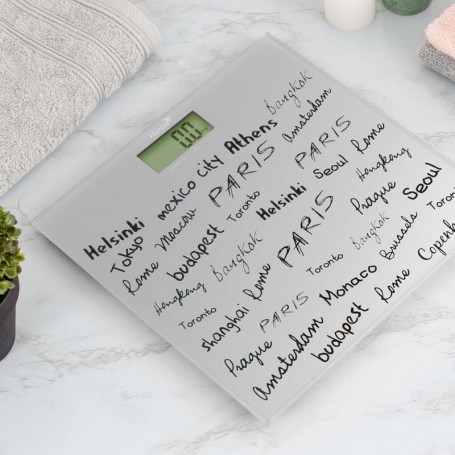 0.0
Helsinki mexico city Athens Bangkok
Tokyo PARIS Amsterdam
Rome Moscow Toronto PARIS Rome
budapest Helsinki Seoul Hongkong
Hongkong Bangkok PARIS Prague Seoul
Toronto Rome Toronto Bangkok Brussels Toronto
shanghai PARIS Monaco Copenh
Prague Amsterdam budapest Rome